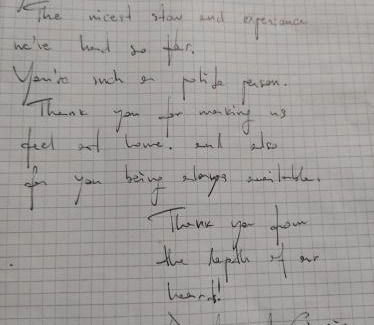 The nicest stay and experience
we've had so far.
You're such a polite person.
Thank you for making us
feel at home. and also
for you being always available.
Thank you from
the depth of our
heart!